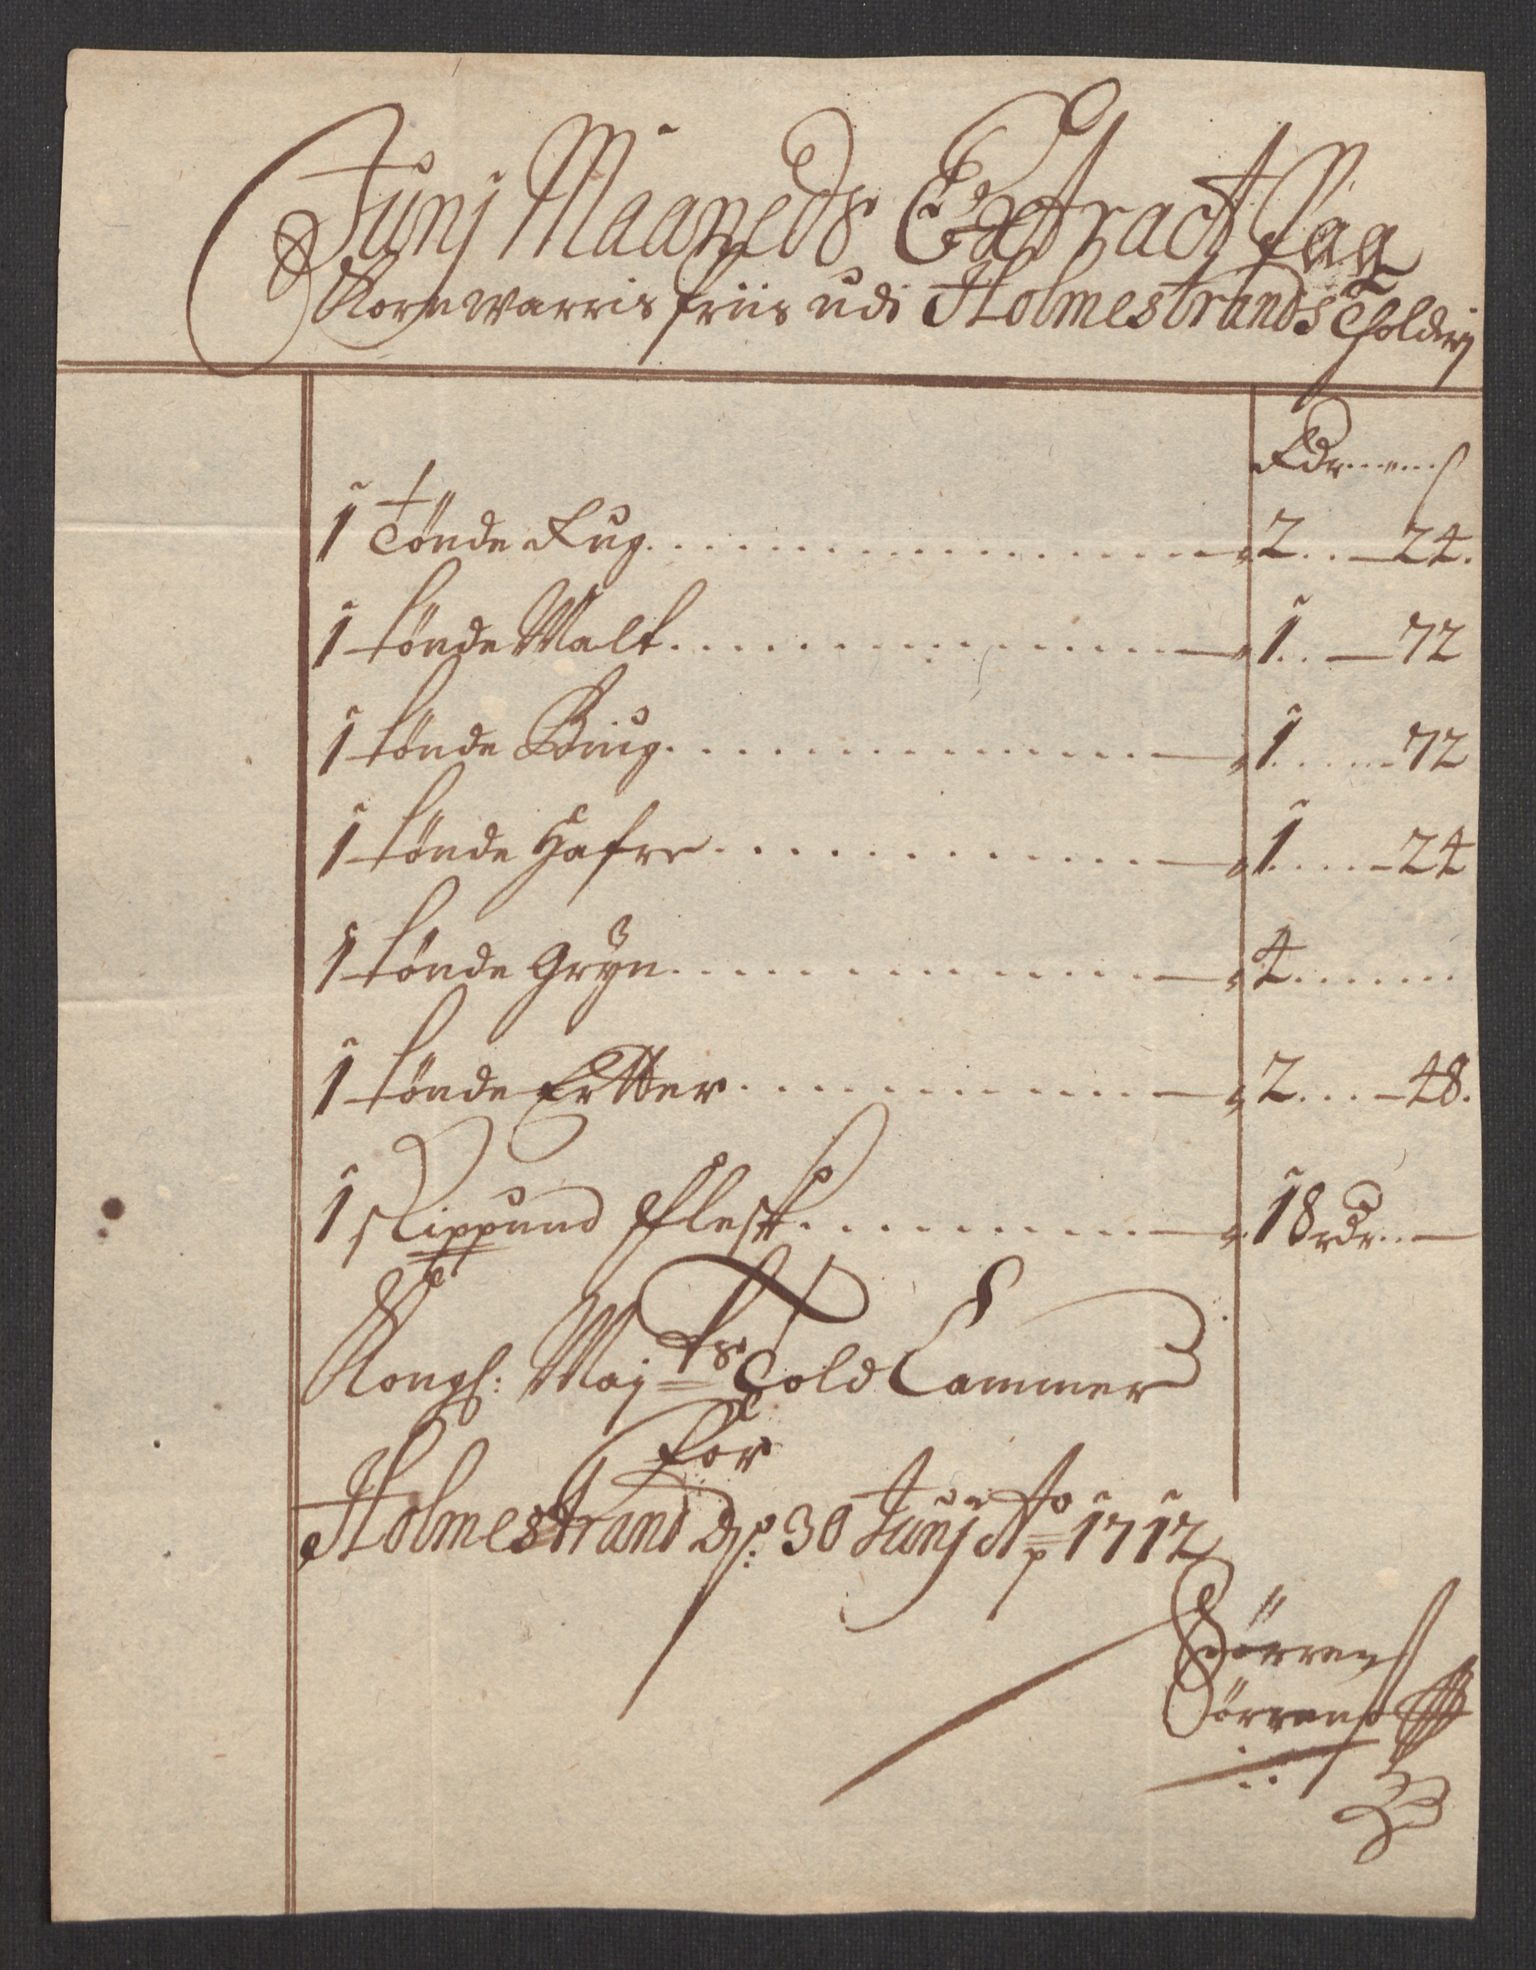 Junj Maaneds Extract Paa
Kornwarris Priis udi Holmestrands Tholderj
Rdr
1 Tønde Rug 2 24.
1 tønde Malt 1 72
1 tønde Biug 1 72
1 tønde Hafre 1 24
1 tønde Gryn 4
1 tønde Ertter 2 48.
1 skippund Flesk 18 rdr
Kongl: Maj ts Told Cammer
for
Holmestrand d: 30 Junj Ao 1712
Sørren
Sørrens